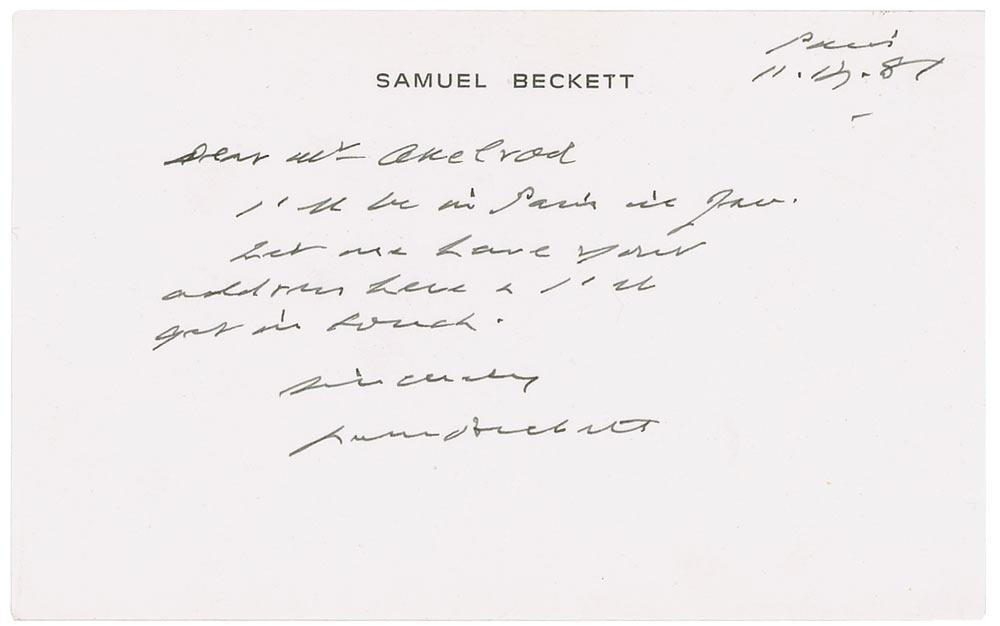 SAMUEL BECKETT
Paris
11.12.87
Dear Mr Axelrod
I'll be in Paris in Jan.
Let me have your
address here & I'll
get in touch.
Sincerely
Sam Beckett